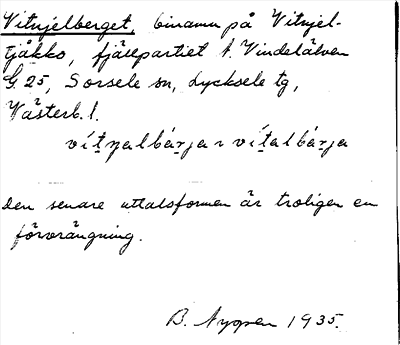 Vitnjelberget, binamn på Vitnjel-
tjåkko, fjällpartiet t. Vindelälven
G. 25, Sorsele sn, Lycksele tg,
Västerb. l.
vítnalbárja ~ vítalbárja
Den senare uttalsformen är troligen en
förvrängning.
B. Nygren 1935.